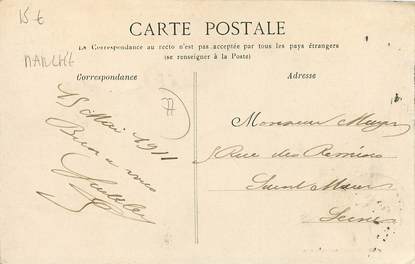 15€
MARCHÉE
CARTE POSTALE
La Correspondance au recto n'est pas acceptée par tous les pays étrangers
(se renseigner à la Poste)
Correspondance
Adresse
77
15 Mai 1911
Bien à vous
Monsieur
Rue des
Saint Maur
Seine